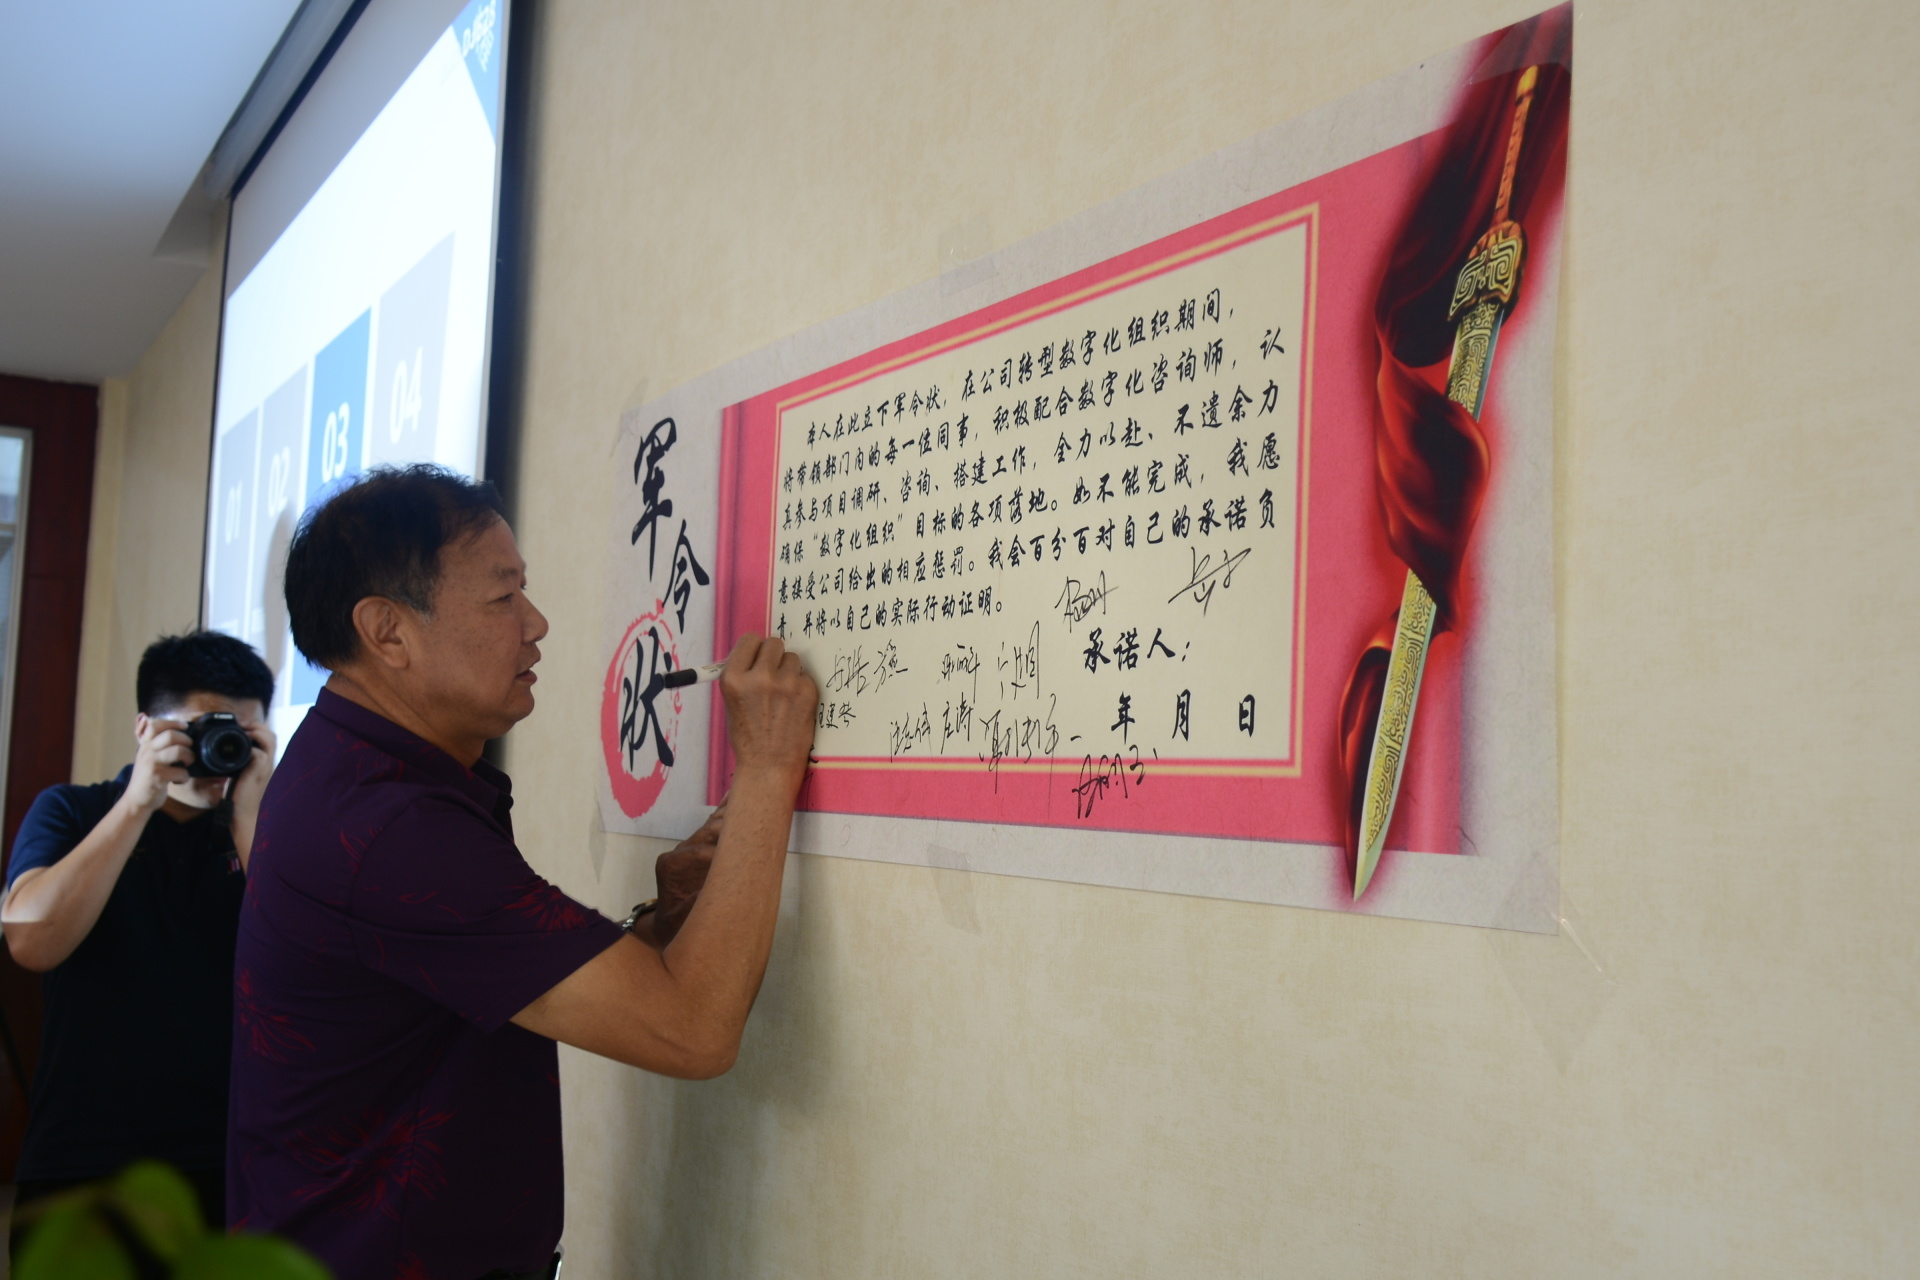 01
02
03
04
军令状
本人在此立下军令状，在公司转型数字化组织期间，
将带领部门内的每一位同事，积极配合数字化咨询师，认
真参与项目调研、咨询、搭建工作，全力以赴、不遗余力
确保“数字化组织”目标的各项落地。如不能完成，我愿
意接受公司给出的相应惩罚。我会百分百对自己的承诺负
责，并将以自己的实际行动证明。
承诺人：
年 月 日